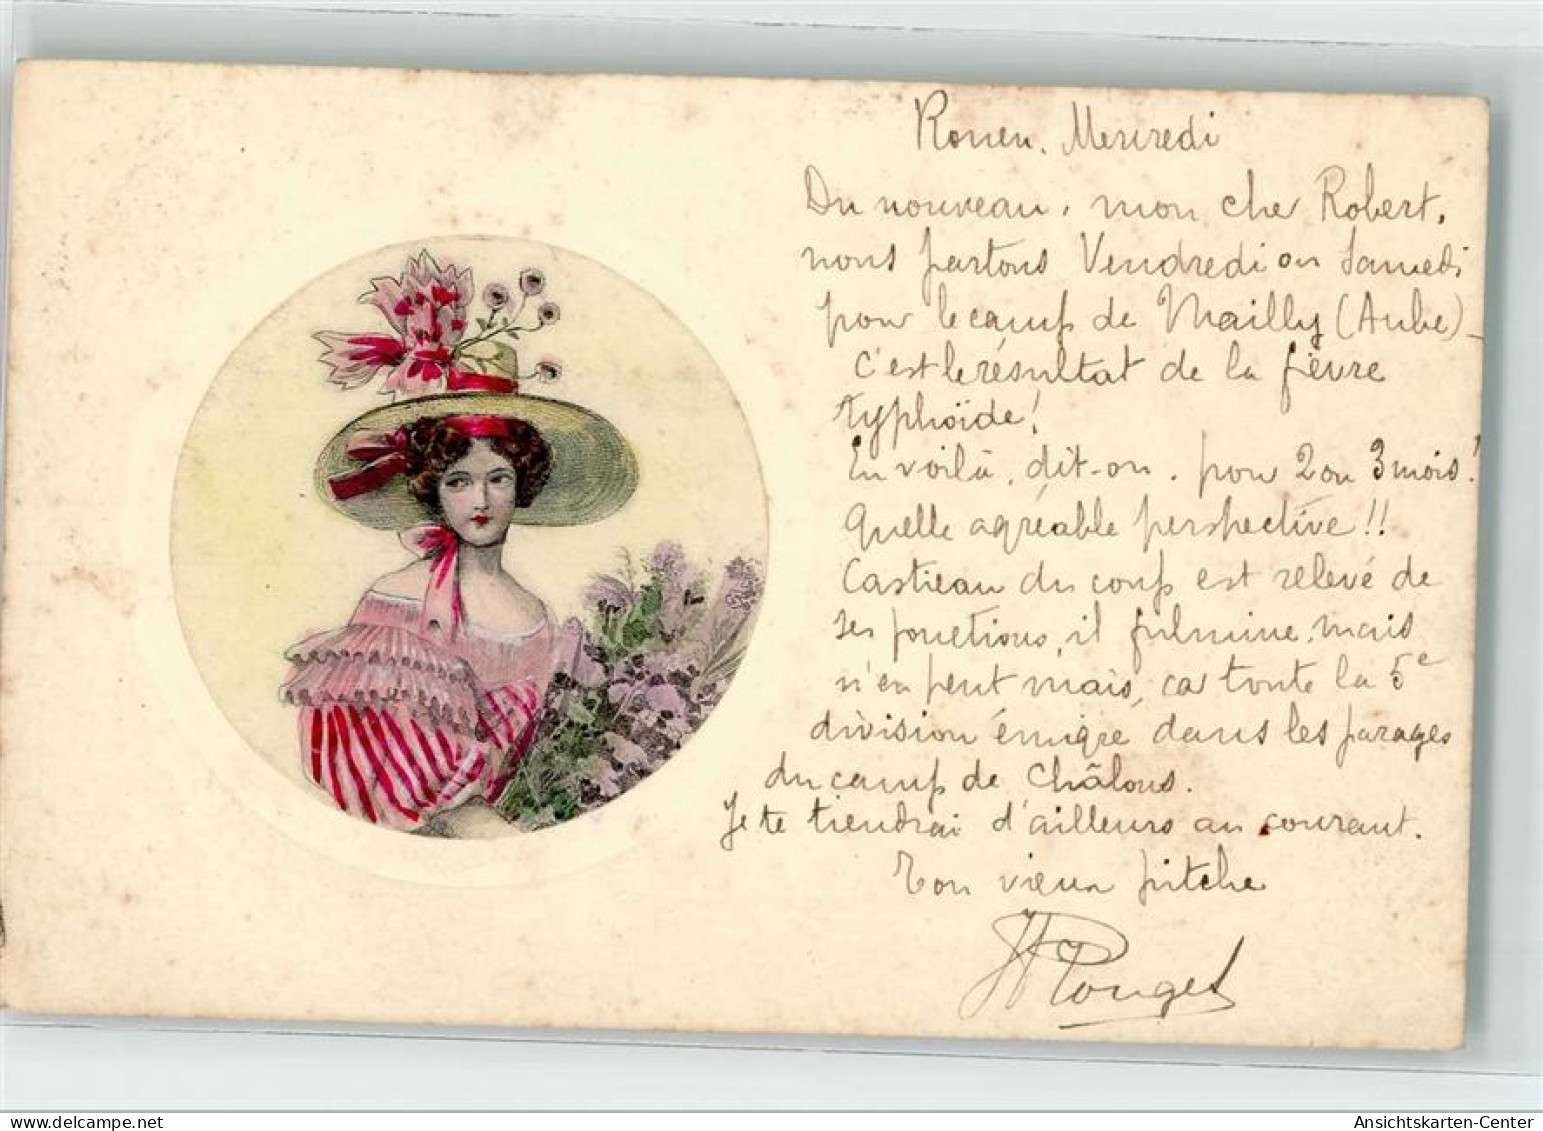 Rouen. Mercredi
Du nouveau, mon cher Robert,
nous partons Vendredi ou Samedi
pour le camp de Mailly (Aube) -
C'est le résultat de la fièvre
typhoïde!
En voilà, dit-on, pour 2 ou 3 mois!
Quelle agréable perspective!!
Castreau du coup est relevé de
ses fonctions, il fulmine, mais
n'en peut mais, car toute la 5e
division émigre dans les parages
du camp de Châlons.
Je te tiendrai d'ailleurs au courant.
Ton vieux pitche
H Pouget
Ansichtskarten-Center